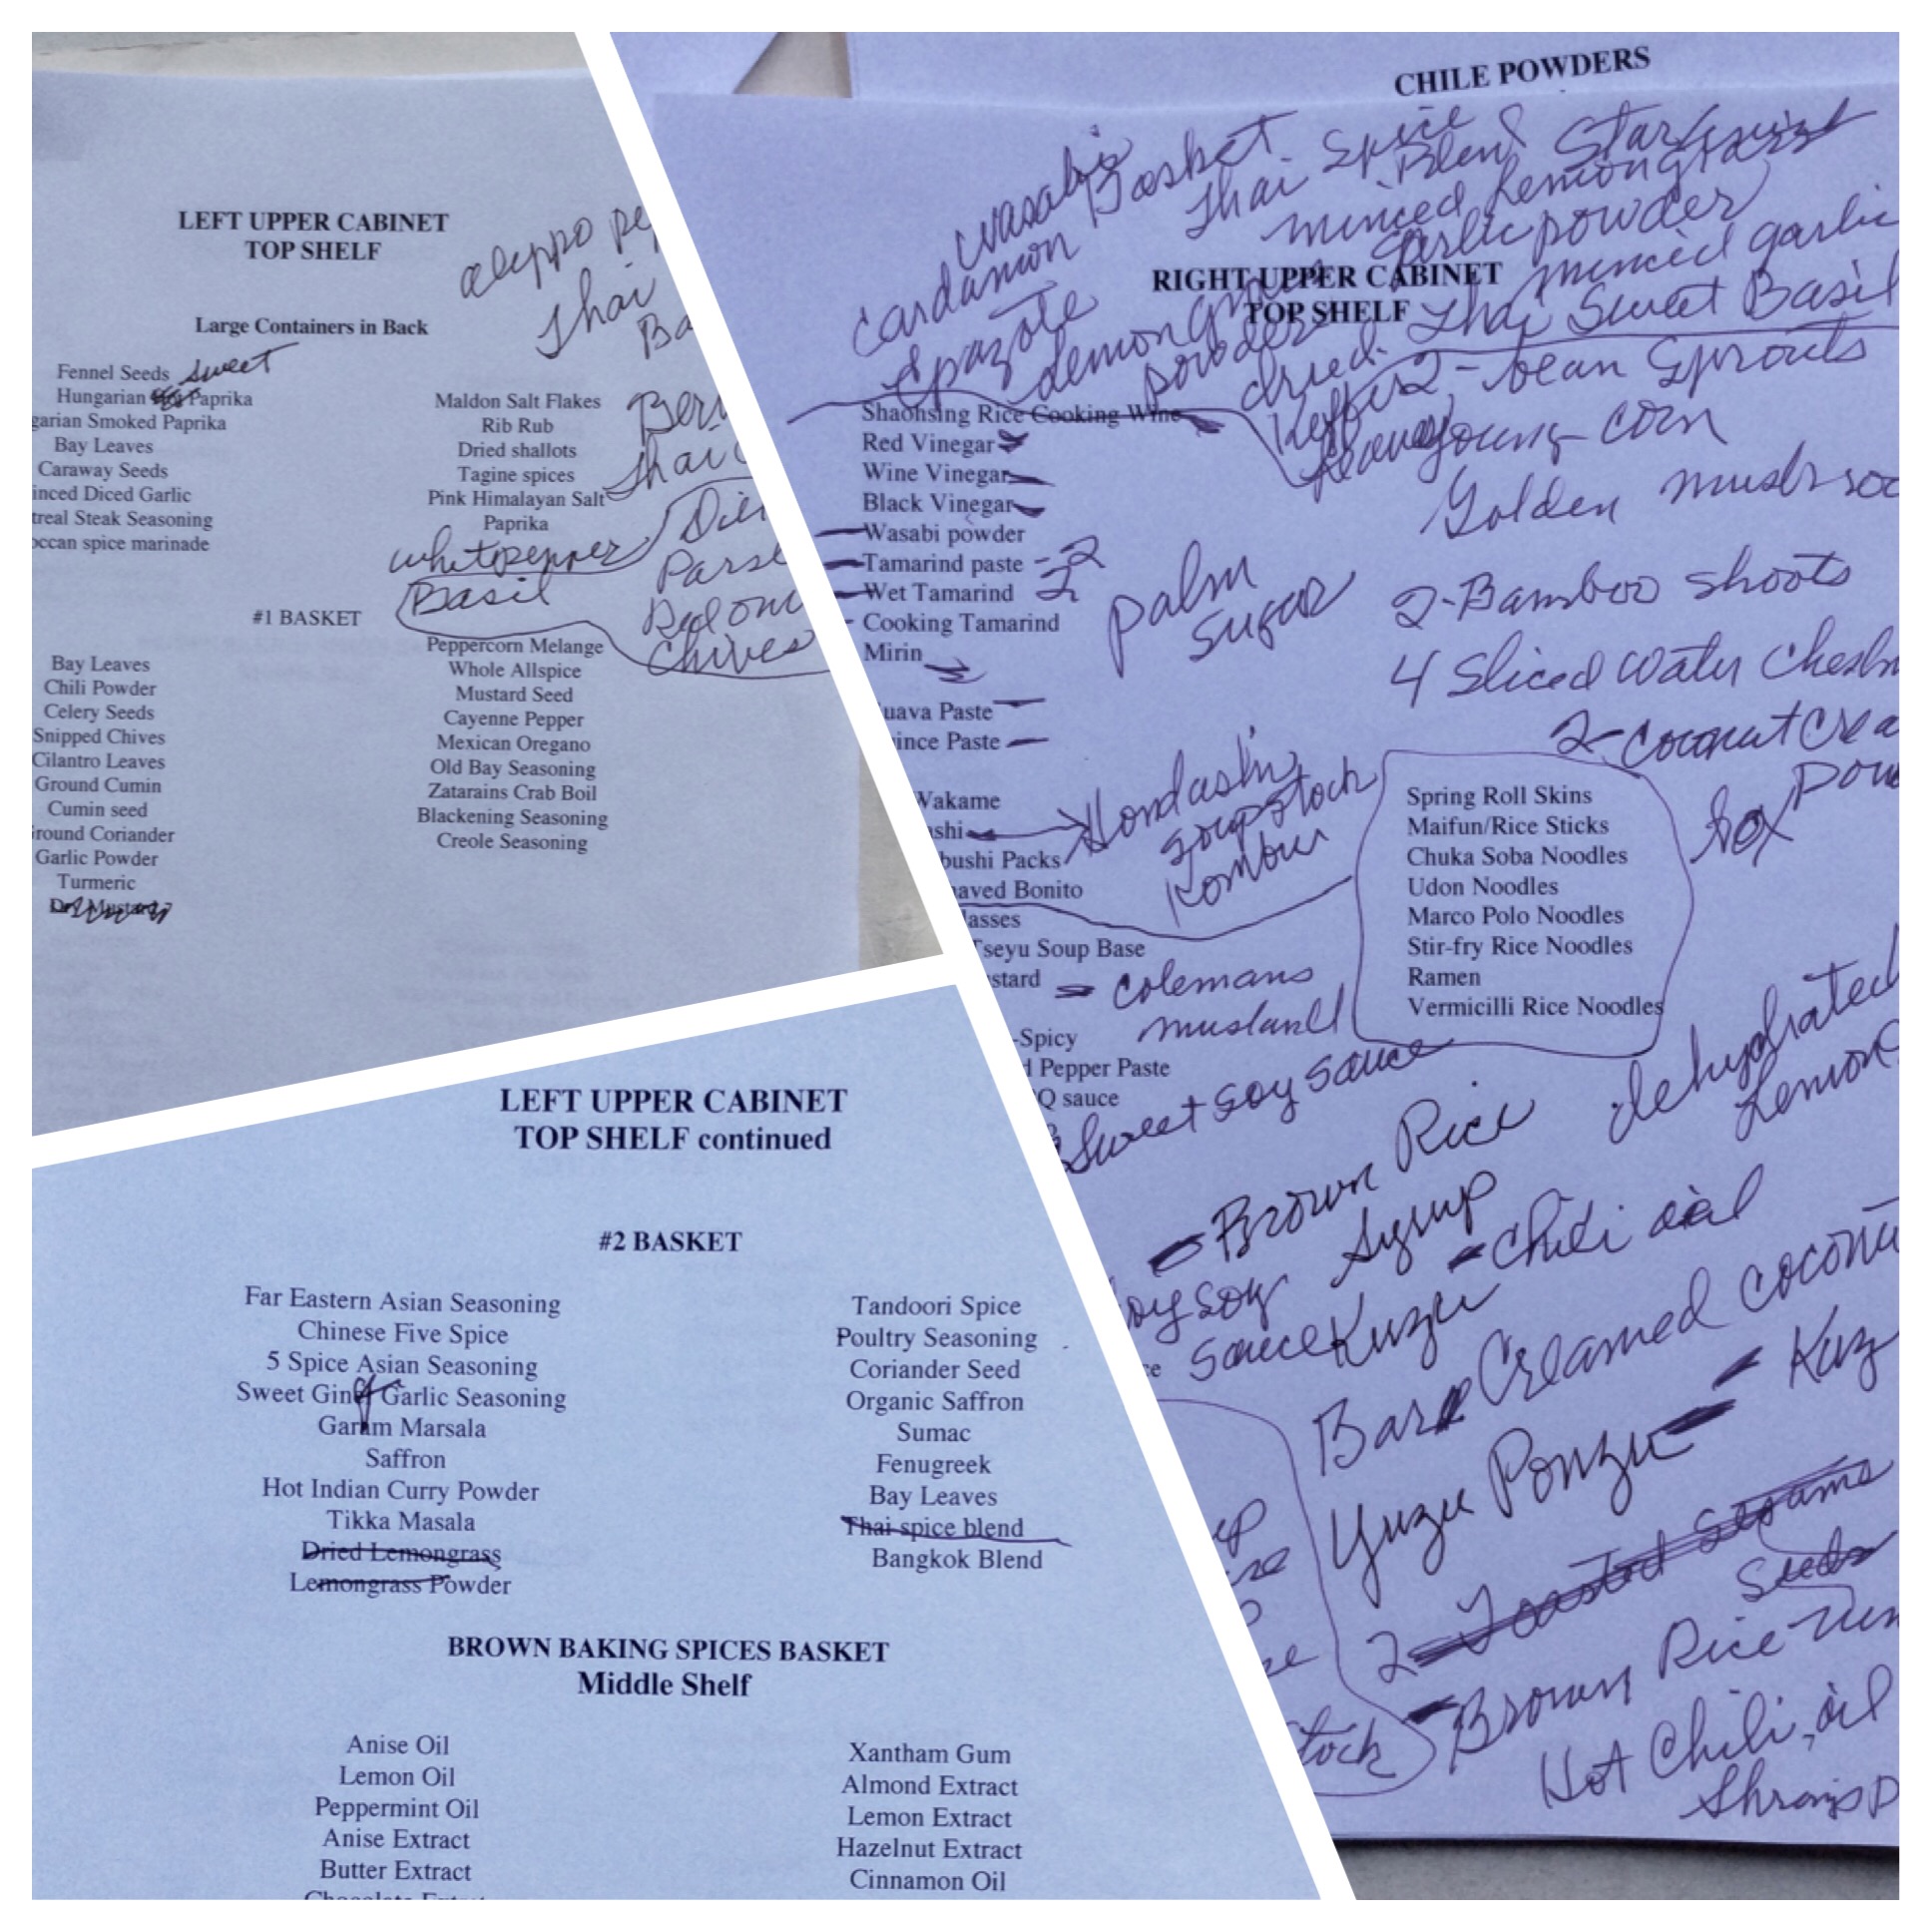 LEFT UPPER CABINET
TOP SHELF
aleppo
Thai
Large Containers in Back
Fennel Seeds sweet
Hungarian Paprika
garian Smoked Paprika
Bay Leaves
Caraway Seeds
inced Diced Garlic
treal Steak Seasoning
occan spice marinade
Maldon Salt Flakes
Rib Rub
Dried shallots
Tagine spices
Pink Himalayan Salt
Paprika
Thai
whitpepper
Basil
Chives
#1 BASKET
Bay Leaves
Chili Powder
Celery Seeds
Snipped Chives
Cilantro Leaves
Ground Cumin
Cumin seed
round Coriander
Garlic Powder
Turmeric
Peppercorn Melange
Whole Allspice
Mustard Seed
Cayenne Pepper
Mexican Oregano
Old Bay Seasoning
Zatarains Crab Boil
Blackening Seasoning
Creole Seasoning
CHILE POWDERS
wasabi
Basket
Thai Spice
Blend
minced Lemongrass
garlic powder
minced garlic
cardamon
Epazote
Lemon
powder
dried
Thai Sweet Basil
RIGHT UPPER CABINET
TOP SHELF
2-bean Sprouts
young corn
Golden
palm
sugar
2-Bamboo shoots
4 Sliced water
2-coconut
box
Shaohsing Rice Cooking Wine
Red Vinegar
Wine Vinegar
Black Vinegar
Wasabi powder
Tamarind paste -2
Wet Tamarind 2
Cooking Tamarind
Mirin
uava Paste
ince Paste
Vakame
ashi
bushi Packs
aved Bonito
lasses
Tseyu Soup Base
stard
-Spicy
d Pepper Paste
Q sauce
Hondashi
Soup Stock
Kombu
Spring Roll Skins
Maifun/Rice Sticks
Chuka Soba Noodles
Udon Noodles
Marco Polo Noodles
Stir-fry Rice Noodles
Ramen
Vermicilli Rice Noodles
colemans
mustard
Sweet soy sauce
dehydrated
Lemon
-Brown Rice
Syrup
-Chili oil
soy
sauce
Kuzu
Bar Creamed
Yuzu Ponzu
Kuz
2-Toasted Sesame
Seeds
Brown Rice
Hot Chili oil
tock
LEFT UPPER CABINET
TOP SHELF continued
#2 BASKET
Far Eastern Asian Seasoning
Chinese Five Spice
5 Spice Asian Seasoning
Sweet Ging Garlic Seasoning
Garam Marsala
Saffron
Hot Indian Curry Powder
Tikka Masala
Dried Lemongrass
Lemongrass Powder
Tandoori Spice
Poultry Seasoning
Coriander Seed
Organic Saffron
Sumac
Fenugreek
Bay Leaves
Thai spice blend
Bangkok Blend
BROWN BAKING SPICES BASKET
Middle Shelf
Anise Oil
Lemon Oil
Peppermint Oil
Anise Extract
Butter Extract
Xantham Gum
Almond Extract
Lemon Extract
Hazelnut Extract
Cinnamon Oil